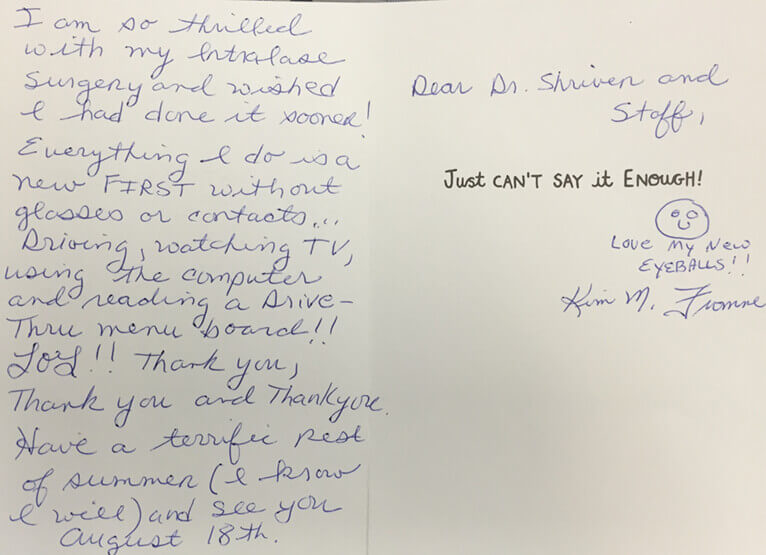 I am so thrilled
with my Intralase
surgery and wished
I had done it sooner!
Everything I do is a
new FIRST without
glasses or contacts...
Driving, watching TV,
using the computer
and reading a Drive-
Thru menu board!!
LOL!! Thank you,
Thank you and Thankyou.
Have a terrific rest
of summer (I know
I will) and see you
August 18th.
Dear Dr. Shriver and
Staff,
Just CAN'T SAY it ENOUGH!
LOVE MY NEW
EYEBALLS!!
Kim M.